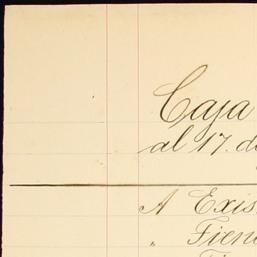 Caja
al 17. de
A Exis
" Fien